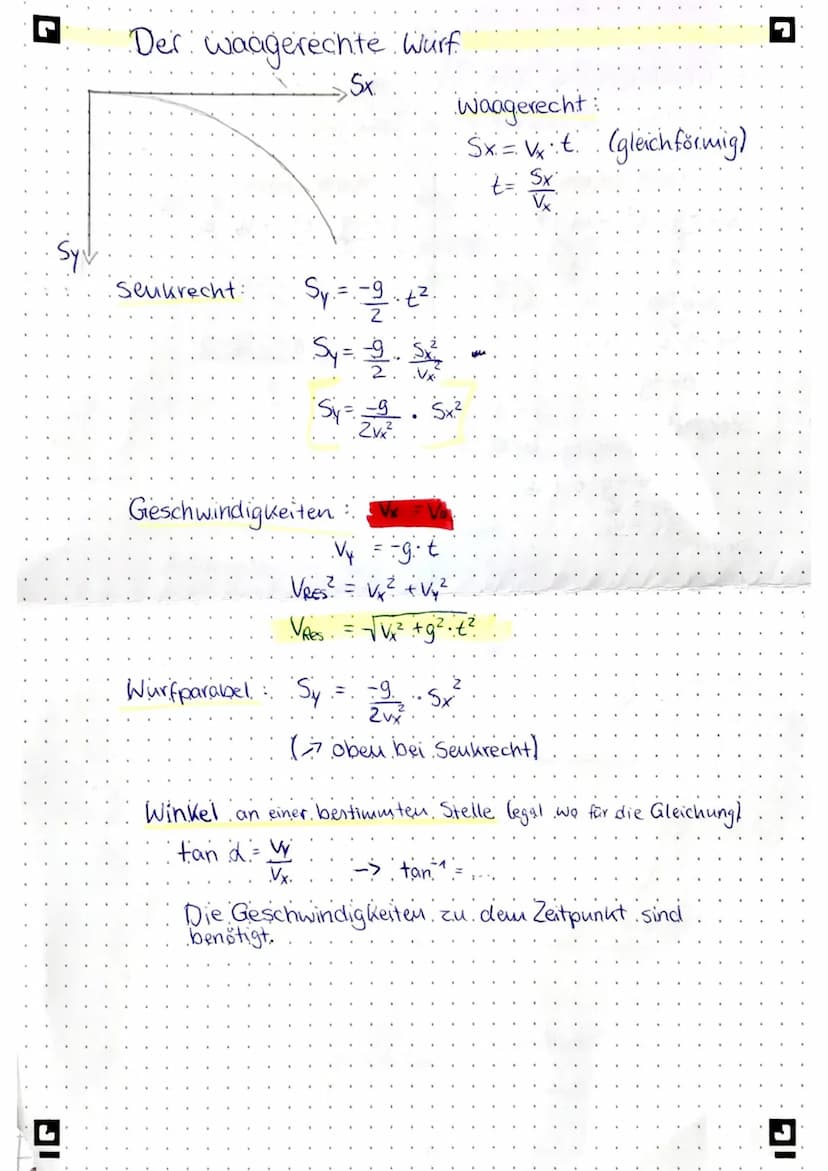 Der waagerechte Wurf
Sx
Sy
waagerecht:
Sx = Vx · t (gleichförmig)
t = Sx/Vx
senkrecht:
Sy = -g/2 · t²
Sy = -g/2 · Sx²/Vx²
Sy = -g/2Vx² · Sx²
Geschwindigkeiten: Vx = V₀
Vy = -g · t
VRes² = Vx² + Vy²
VRes = √Vx² + g² · t²
Wurfparabel: Sy = -g/2Vx² · Sx²
(→ oben bei senkrecht)
Winkel an einer bestimmten Stelle (egal wo für die Gleichung)
tan α = Vy/Vx -> tan⁻¹ = ...
Die Geschwindigkeiten zu dem Zeitpunkt sind
benötigt.